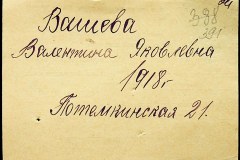 398
391
Вашева
Валентина Яковлевна
1918 г
Потемкинская 21.